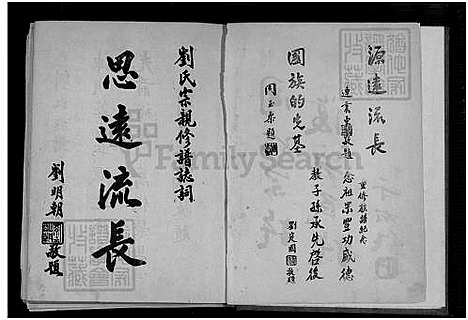 源遠流長
連震東敬題
國族的光基
閻玉衡題
重修族譜紀念
念祖宗豐功盛德
教子孫承先啓後
劉定國敬題
劉氏宗親修譜誌詞
思遠流長
劉明朝敬題
FamilySearch